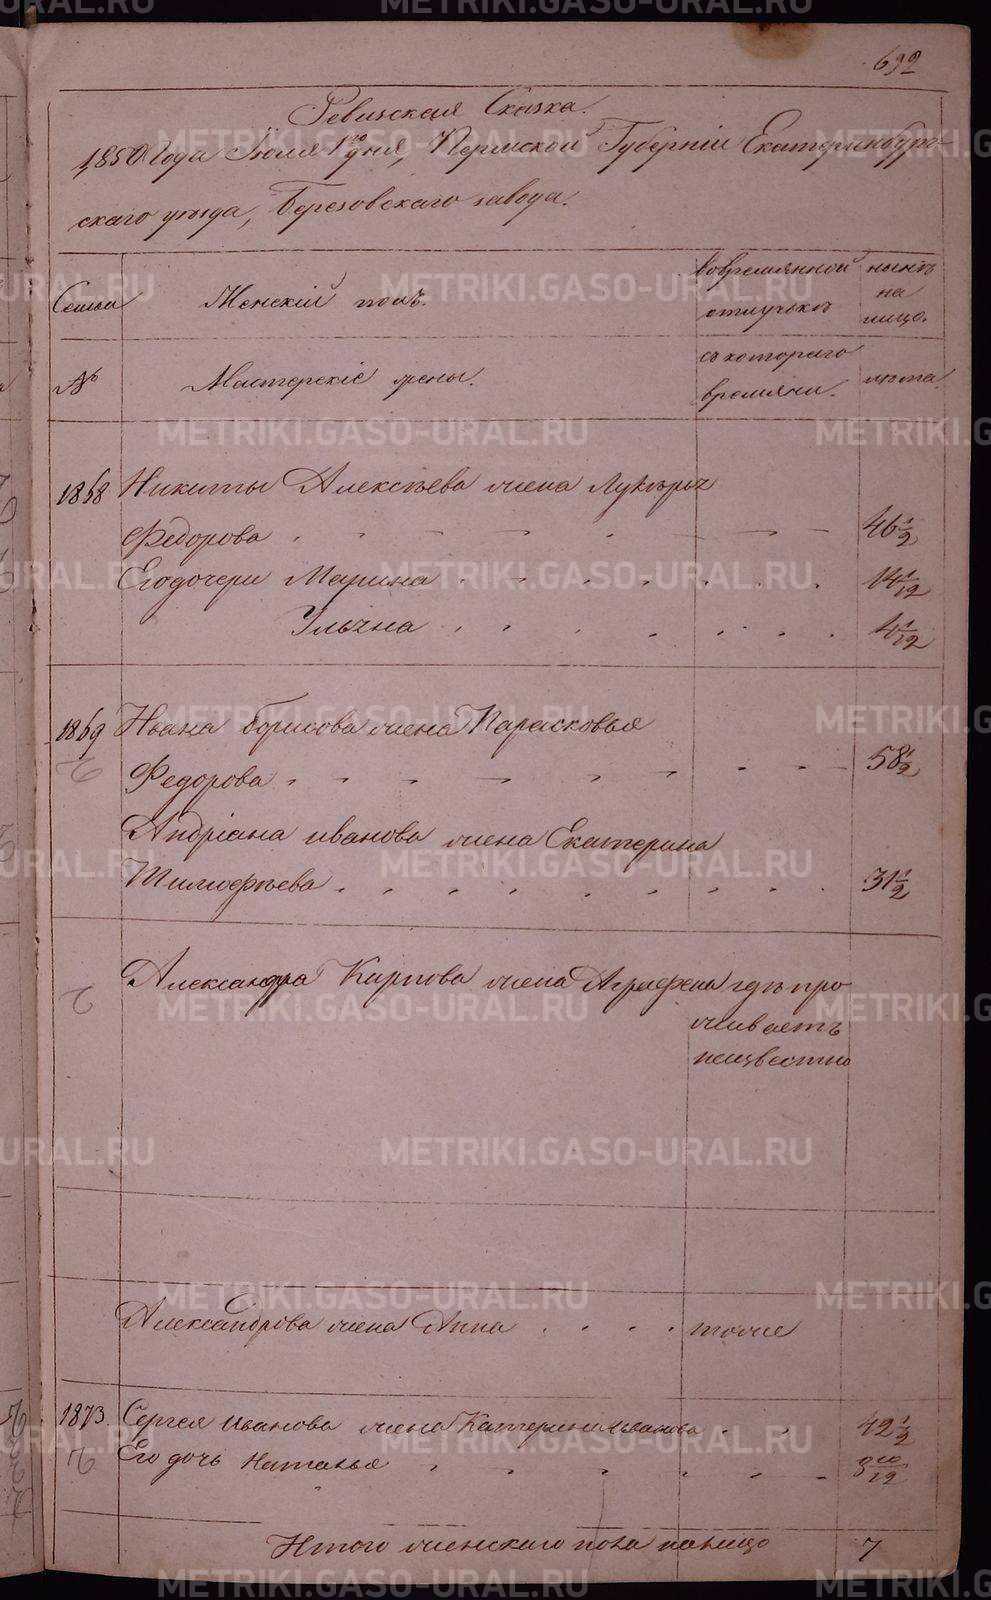 692
Ревизская Сказка.
1850 года Июля 1го дня, Пермской Губернiи Екатеринбур-
скаго уѣзда, Березовскаго завода.
Семьи
Женскiй полъ.
вовремянной
отлучькѣ
нынѣ
на
лицо.
№
Мастерскiе жены.
съ котораго
времяни.
лѣта.
1868 Никиты Алексѣева жена Лукѣрья
Федорова 46 1/2
Его дочери Марина 14 1/12
Ульяна 4 1/12
1869 Ивана Борисова жена Парасковья
Федорова 58 1/2
Андрiана иванова жена Екатерина
Тимофѣева 31 1/2
Александра Карпова жена Аграфена гдѣ про
живаетъ
неизвестно
Александрова жена Анна тоже
1873. Сергея Иванова жена Катерина Иванова 42 1/2
Его дочь Наталья 8 10/12
Итого женскаго пола налицо 7
METRIKI.GASO-URAL.RU